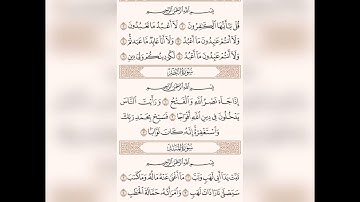 بِسْمِ اللَّهِ الرَّحْمَٰنِ الرَّحِيمِ
قُلْ يَا أَيُّهَا الْكَافِرُونَ ١ لَا أَعْبُدُ مَا تَعْبُدُونَ ٢
وَلَا أَنْتُمْ عَابِدُونَ مَا أَعْبُدُ ٣ وَلَا أَنَا عَابِدٌ مَا عَبَدْتُمْ ٤
وَلَا أَنْتُمْ عَابِدُونَ مَا أَعْبُدُ ٥ لَكُمْ دِينُكُمْ وَلِيَ دِينِ ٦
سُورَةُ النَّصْرِ
بِسْمِ اللَّهِ الرَّحْمَٰنِ الرَّحِيمِ
إِذَا جَاءَ نَصْرُ اللَّهِ وَالْفَتْحُ ١ وَرَأَيْتَ النَّاسَ
يَدْخُلُونَ فِي دِينِ اللَّهِ أَفْوَاجًا ٢ فَسَبِّحْ بِحَمْدِ رَبِّكَ
وَاسْتَغْفِرْهُ إِنَّهُ كَانَ تَوَّابًا ٣
سُورَةُ الْمَسَدِ
بِسْمِ اللَّهِ الرَّحْمَٰنِ الرَّحِيمِ
تَبَّتْ يَدَا أَبِي لَهَبٍ وَتَبَّ ١ مَا أَغْنَىٰ عَنْهُ مَالُهُ وَمَا كَسَبَ ٢
سَيَصْلَىٰ نَارًا ذَاتَ لَهَبٍ ٣ وَامْرَأَتُهُ حَمَّالَةَ الْحَطَبِ ٤